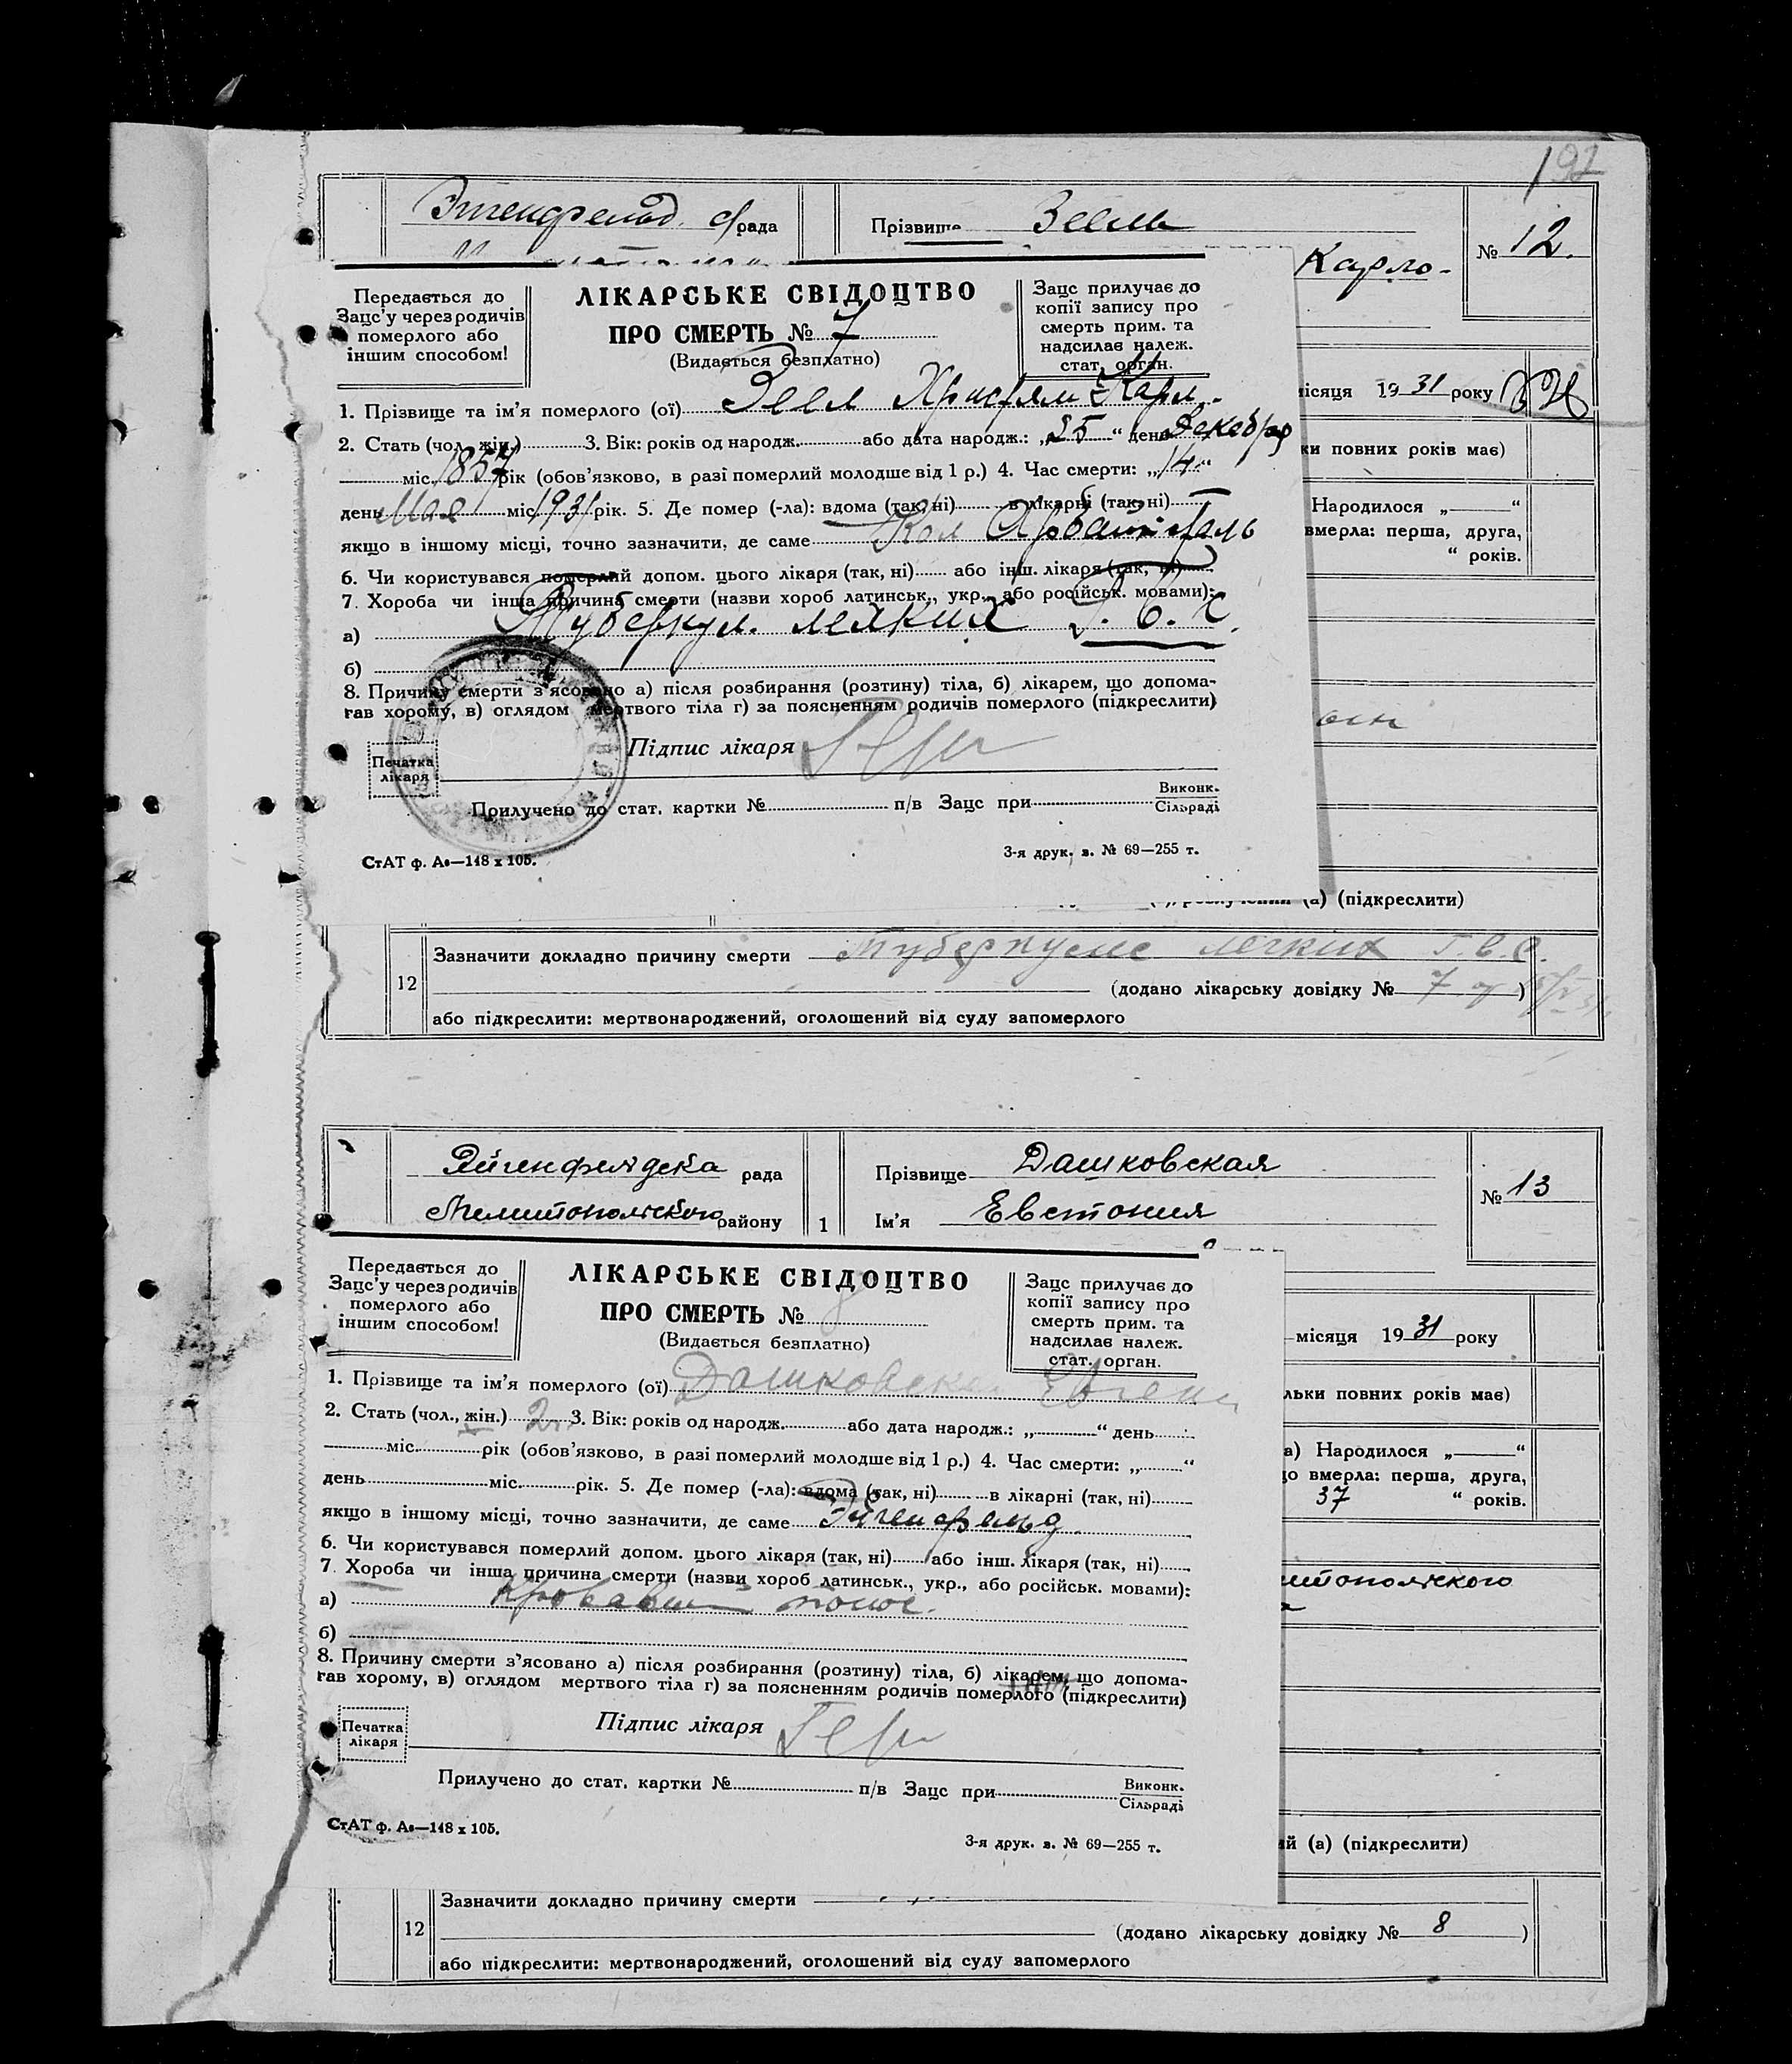 192
рада
Прізвище Зеель
№ 12.
Карло-
Передається до
Зацс'у через родичів
померлого або
іншим способом!
ЛІКАРСЬКЕ СВІДОЦТВО
ПРО СМЕРТЬ № 7
(Видається безплатно)
Зацс прилучає до
копії запису про
смерть прим. та
надсилає належ.
стат. орган.
місяця 1931 року
1. Прізвище та ім'я померлого (ої) Зеел Христьян Карл.
2. Стать (чол., жін.) 3. Вік: років од народж. або дата народж.: „25“ день Декабря
ки повних років має)
міс. 1857 рік (обов'язково, в разі померлий молодше від 1 р.) 4. Час смерти: „14“
день Мая міс. 1931 рік. 5. Де помер (-ла): вдома (так, ні) в лікарні (так, ні)
Народилося „ “
якщо в іншому місці, точно зазначити, де саме Кол
вмерла: перша, друга,
“ років.
6. Чи користувався померлий допом. цього лікаря (так, ні) або інш. лікаря (так, ні)
7. Хороба чи інша причина смерти (назви хороб латинськ., укр., або російськ. мовами):
а) Туберкул. легких
б)
8. Причину смерти з'ясовано а) після розбирання (розтину) тіла, б) лікарем, що допома-
гав хорому, в) оглядом мертвого тіла г) за поясненням родичів померлого (підкреслити)
Підпис лікаря
Печатка
лікаря
Прилучено до стат. картки № п/в Зацс при Виконк.
Сільраді
СтАТ ф. А₆—148 х 105.
3-я друк. з. № 69—255 т.
(а) (підкреслити)
12
Зазначити докладно причину смерти Туберкулез легких Т.б.с.
(додано лікарську довідку № 7 )
або підкреслити: мертвонароджений, оголошений від суду запомерлого
Эйгенфельдска рада
Прізвище Дашковская
№ 13
Мелитопольского району
1
Ім'я Евгения
Передається до
Зацс'у через родичів
померлого або
іншим способом!
ЛІКАРСЬКЕ СВІДОЦТВО
ПРО СМЕРТЬ № 8
(Видається безплатно)
Зацс прилучає до
копії запису про
смерть прим. та
надсилає належ.
стат. орган.
місяця 1931 року
1. Прізвище та ім'я померлого (ої) Дашковска Евгени
льки повних років має)
2. Стать (чол., жін.) 3. Вік: років од народж. або дата народж.: „ “ день
міс. рік (обов'язково, в разі померлий молодше від 1 р.) 4. Час смерти: „ “
а) Народилося „ “
день міс. рік. 5. Де помер (-ла): вдома (так, ні) в лікарні (так, ні)
що вмерла: перша, друга,
37 “ років.
якщо в іншому місці, точно зазначити, де саме Эйгенфельд
6. Чи користувався померлий допом. цього лікаря (так, ні) або інш. лікаря (так, ні)
7. Хороба чи інша причина смерти (назви хороб латинськ., укр., або російськ. мовами):
итопольского
а) Кровавый понос.
б)
8. Причину смерти з'ясовано а) після розбирання (розтину) тіла, б) лікарем, що допома-
гав хорому, в) оглядом мертвого тіла г) за поясненням родичів померлого (підкреслити)
Підпис лікаря
Печатка
лікаря
Прилучено до стат. картки № п/в Зацс при Виконк.
Сільраді
СтАТ ф. А₆—148 х 105.
3-я друк. з. № 69—255 т.
ий (а) (підкреслити)
12
Зазначити докладно причину смерти
(додано лікарську довідку № 8 )
або підкреслити: мертвонароджений, оголошений від суду запомерлого